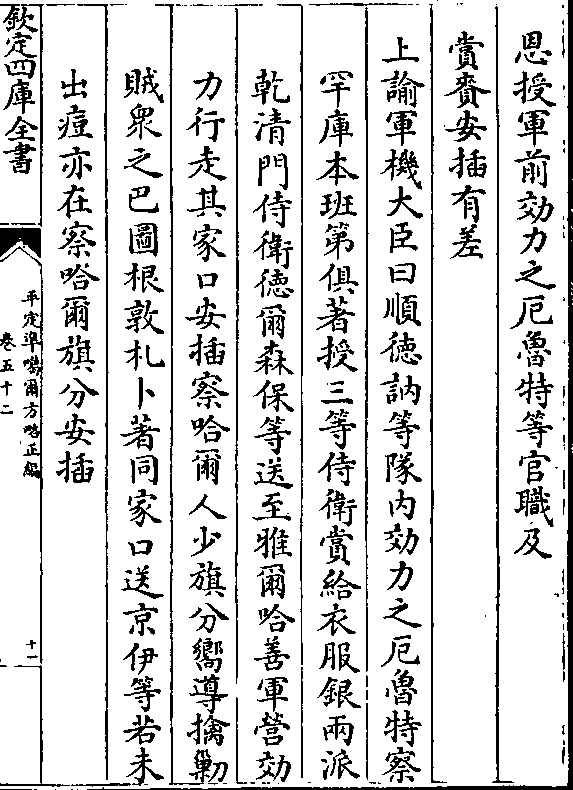 恩授軍前効力之厄魯特等官職及
賞賚安插有差
上諭軍機大臣曰順徳訥等隊内効力之厄魯特察
罕庫本班第俱著授三等侍衛賞給衣服銀兩派
乾清門侍衛徳爾森保等送至雅爾哈善軍營効
力行走其家口安插察哈爾人少旗分嚮導擒剿
賊衆之巴圖根敦札卜著同家口送京伊等若未
出痘亦在察哈爾旗分安插
欽定四庫全書
平定準噶爾方略正編
卷五十二
十一